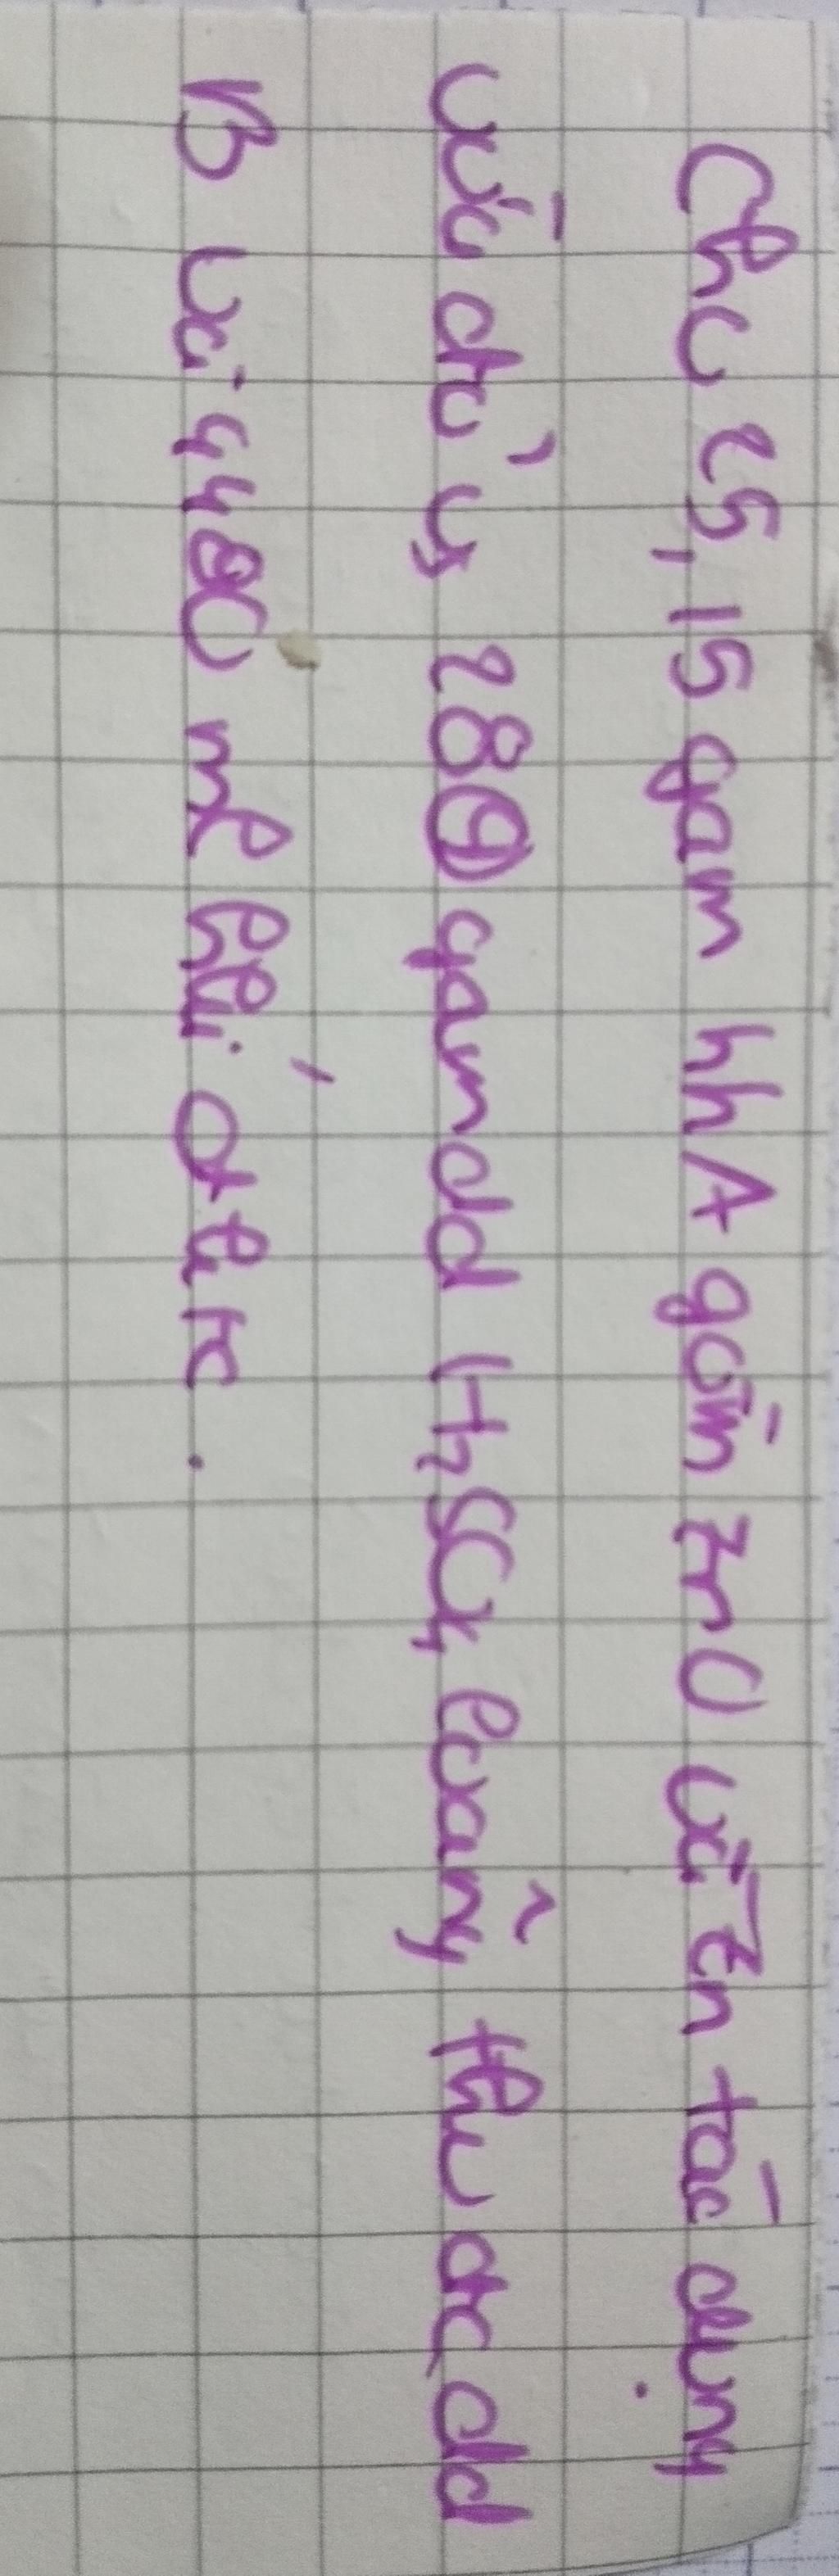 Cho 25,15 gam hh A gồm ZnO và Zn tác dụng
vừa đủ vs 280 gam dd H₂SO₄ loãng thu đc dd
B và 4480 ml khí ở đktc.